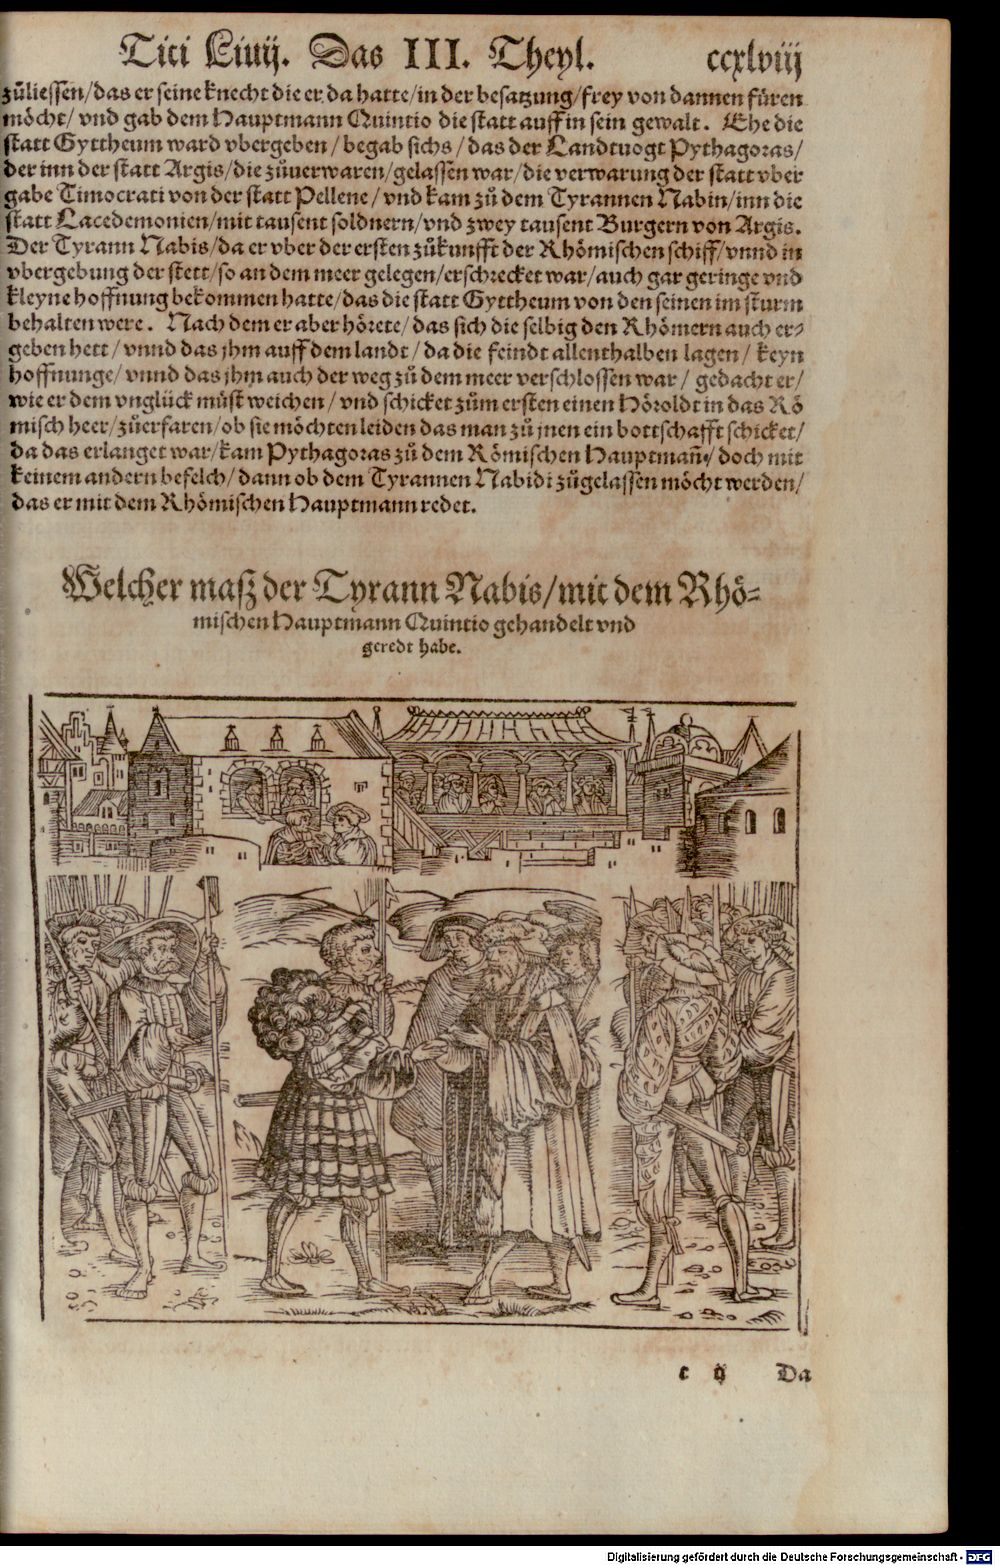 Titi Liuij. Das III. Theyl. ccxlviij
zůliessen/das er seine knecht die er da hatte/in der besatzung/frey von dannen füren
möcht/ vnd gab dem Hauptmann Quintio die statt auff in sein gewalt. Ehe die
statt Gyttheum ward vbergeben/ begab sichs/ das der Landtuogt Pythagoras/
der inn der statt Argis/die zůuerwaren/gelassen war/die verwarung der statt vber
gabe Timocrati von der statt Pellene/ vnd kam zů dem Tyrannen Nabin/inn die
statt Lacedemonien/mit tausent soldnern/vnd zwey tausent Burgern von Argis.
Der Tyrann Nabis/da er vber der ersten zůkunfft der Rhömischen schiff/vnnd in
vbergebung der stett/so an dem meer gelegen/erschrecket war/auch gar geringe vnd
kleyne hoffnung bekommen hatte/das die statt Gyttheum von den seinen im sturm
behalten were. Nach dem er aber hörete/das sich die selbig den Rhömern auch er-
geben hett/ vnnd das jhm auff dem landt/ da die feindt allenthalben lagen/ keyn
hoffnunge/ vnnd das jhm auch der weg zů dem meer verschlossen war/ gedacht er/
wie er dem vnglück müst weichen/ vnd schicket zům ersten einen Höroldt in das Rö
misch heer/zůerfaren/ob sie möchten leiden das man zů jnen ein bottschafft schicket/
da das erlanget war/kam Pythagoras zů dem Römischen Hauptmañ/ doch mit
keinem andern befelch/dann ob dem Tyrannen Nabidi zůgelassen möcht werden/
das er mit dem Rhömischen Hauptmann redet.
Welcher maß der Tyrann Nabis/mit dem Rhö-
mischen Hauptmann Quintio gehandelt vnd
geredt habe.
c ij Da
Digitalisierung gefördert durch die Deutsche Forschungsgemeinschaft - DFG